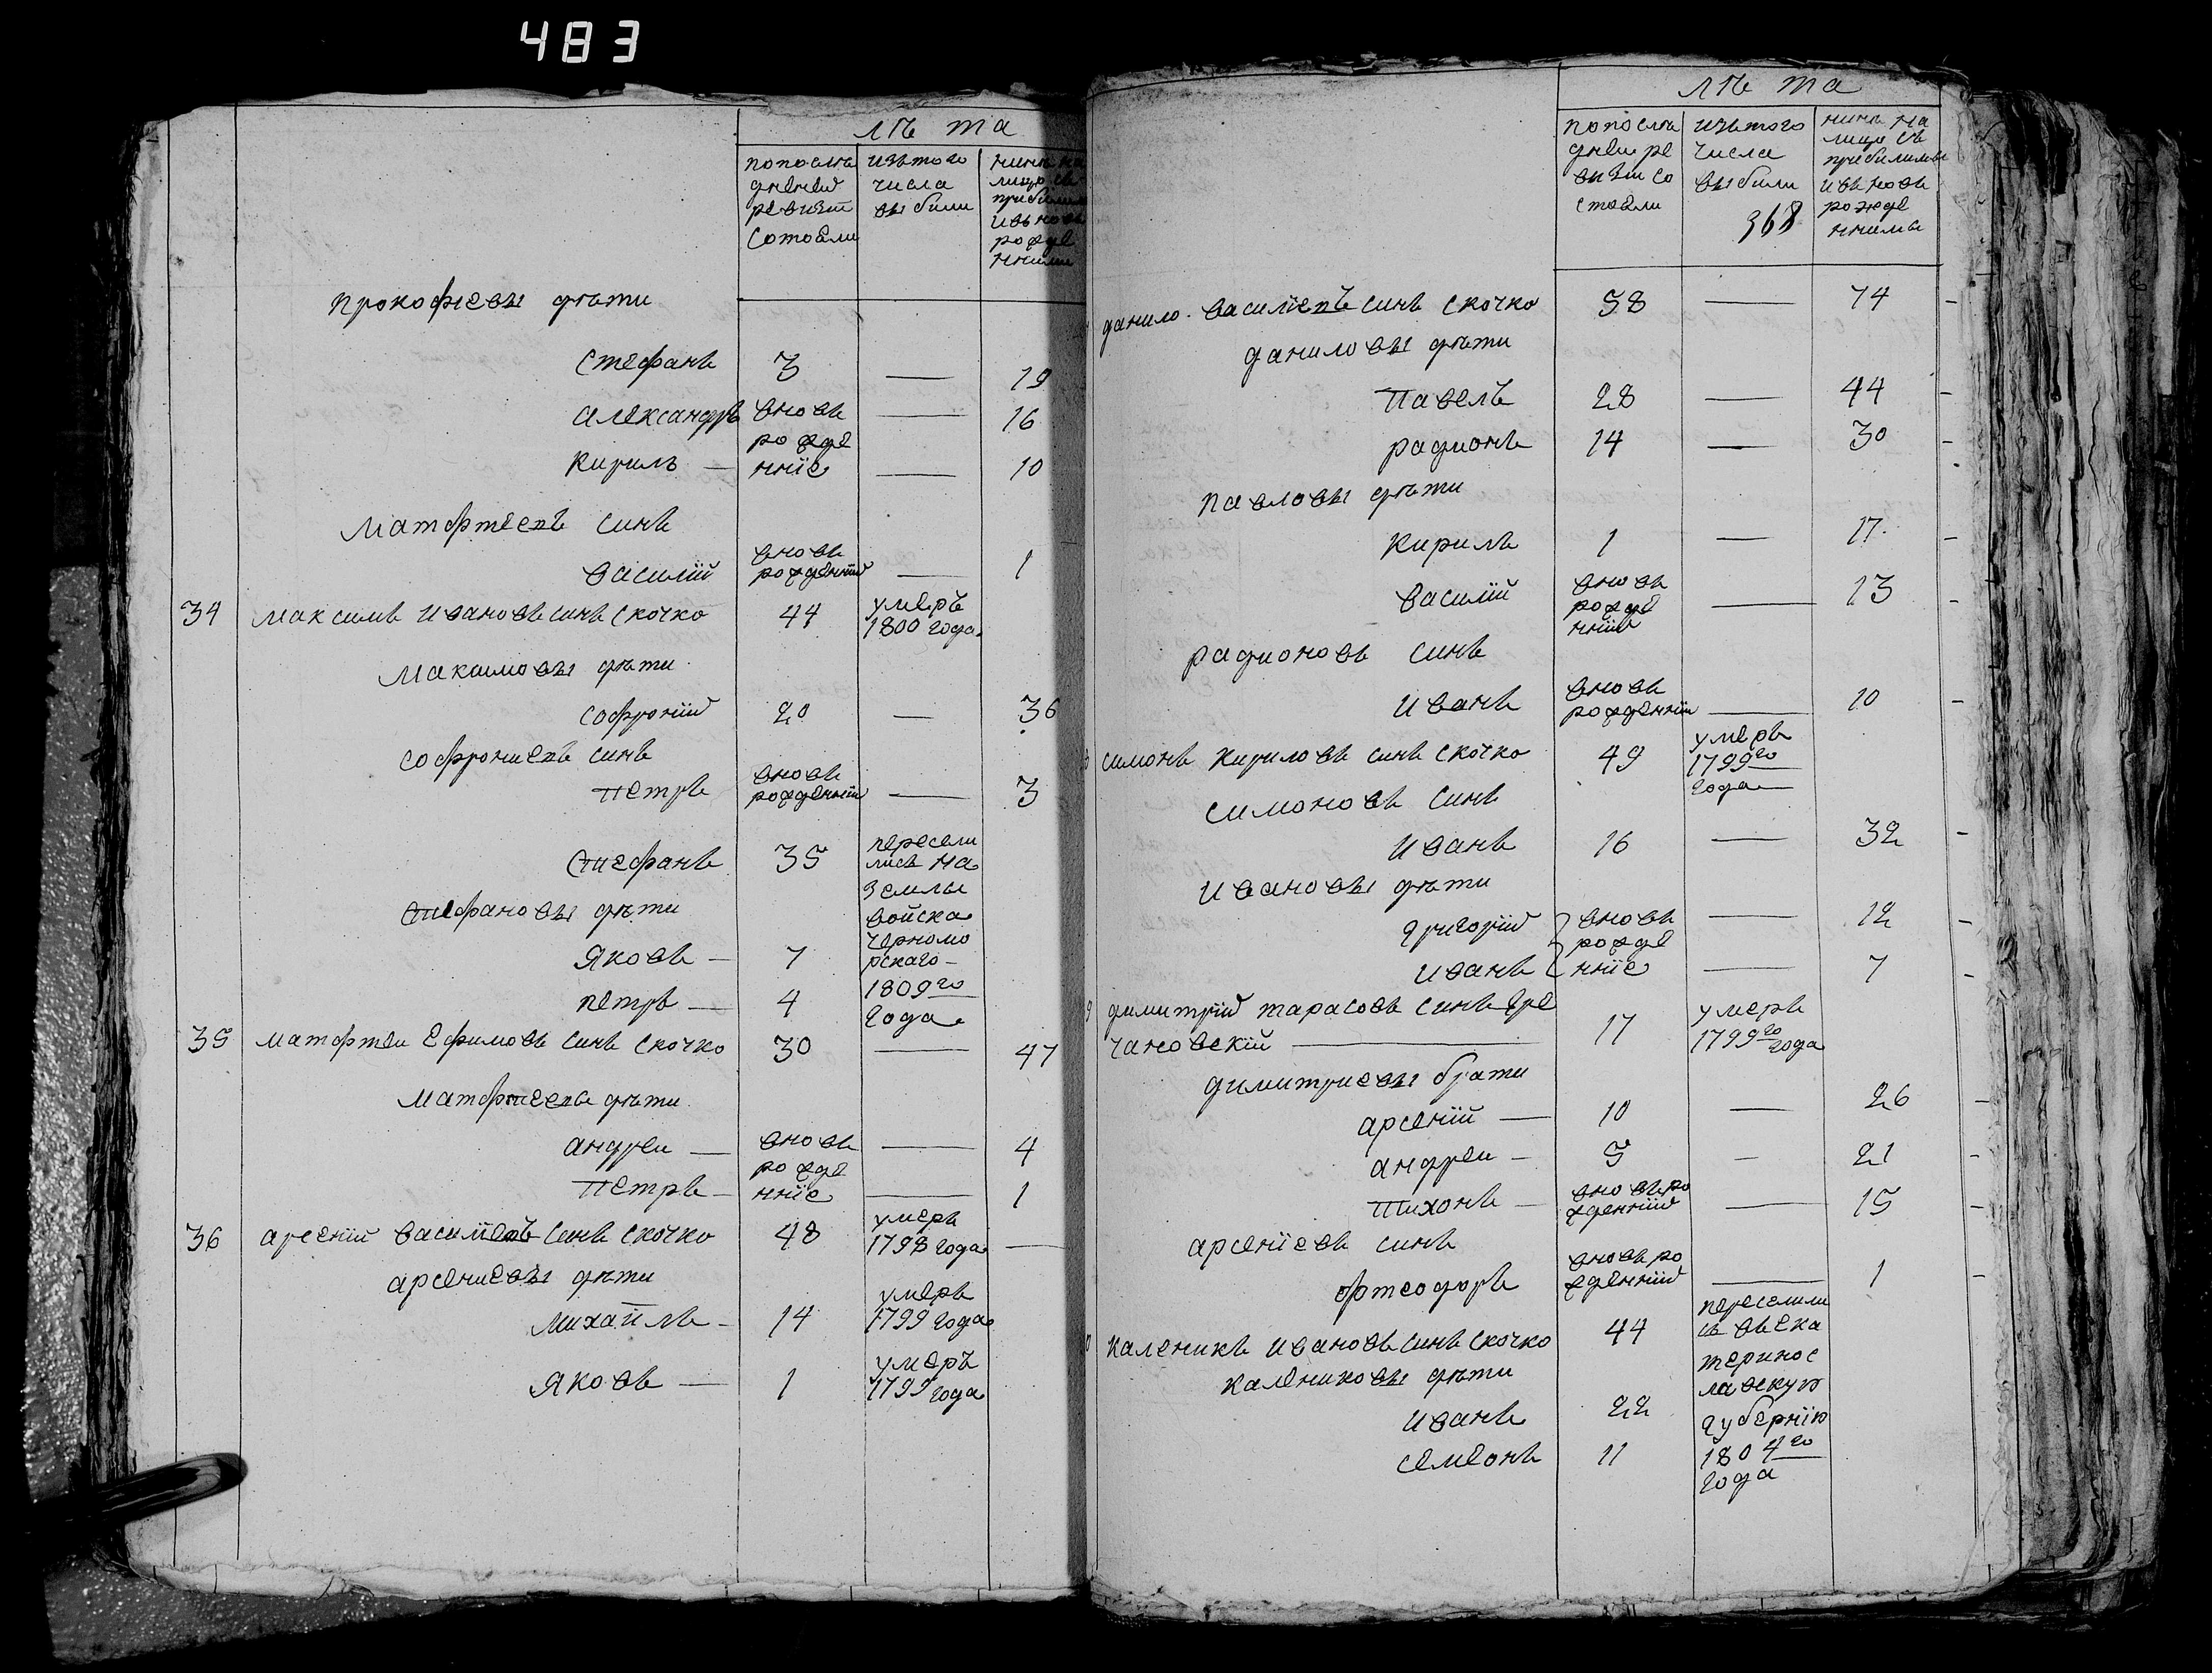 483
лѣ та
попослѣ
дней
ревизіи
состояли
изътого
числа
выбили
нинѣ на
лицо съ
прибилими
ивьновь
рожде
нними
прокофіевы дѣти
Стефанъ 3 — 19
александръ вновь — 16
рожде
кирилъ — нніе — 10
матфѣевъ синъ
василій вновь рожденній — 1
34 максимъ ивановъ синъ скочко 44 умеръ 1800 года
максимовы дѣти
софроній 20 — 36
софрониевъ синъ
петръ вновь рожденній — 3
стефанъ 35 пересели
лись на
земли
стефановы дѣти войска
черномо
яковъ — 7 рскаго —
петръ — 4 1809го
года
35 матфѣи ефимовъ синъ скочко 30 — 47
матфѣевы дѣти
андреи — вновь — 4
рожде
петръ — нніе — 1
36 арсеній василіевъ синъ скочко 48 умеръ 1798 года —
арсениевы дѣти
михайлъ — 14 умеръ 1799 года
яковъ — 1 умеръ 1799 года
лѣ та
попослѣ
дней ре
визіи со
стояли
изътого
числа
выбили
368
нинѣ на
лицо съ
прибилими
ивьновь
рожде
нними
данило василіевъ синъ скочко 58 — 74
даниловы дѣти
павелъ 28 — 44
радионъ 14 — 30
павловы дѣти
кирилъ 1 — 17
василій вновь рожде нній — 13
радионовъ синъ
иванъ вновь рожденній — 10
симонъ кириловъ синъ скочко 49 умеръ 1799го года
симоновъ синъ
иванъ 16 — 32
ивановы дѣти
григорій вновь — 12
рожде
иванъ нніе — 7
9 димитрій тарасовъ синъ гре
чановскій — 17 умеръ 1799го года
димитриевы брати
арсеній — 10 — 26
андреи — 5 — 21
тихонъ — вновьро жденній — 15
арсеніевъ синъ
фтеодоръ вновьро жденній — 1
0 каленикъ ивановъ синъ скочко 44 переселили
сь въека
калениковы дѣти теринос
лавскую
иванъ 22 губернію
семенъ 11 1804го
года